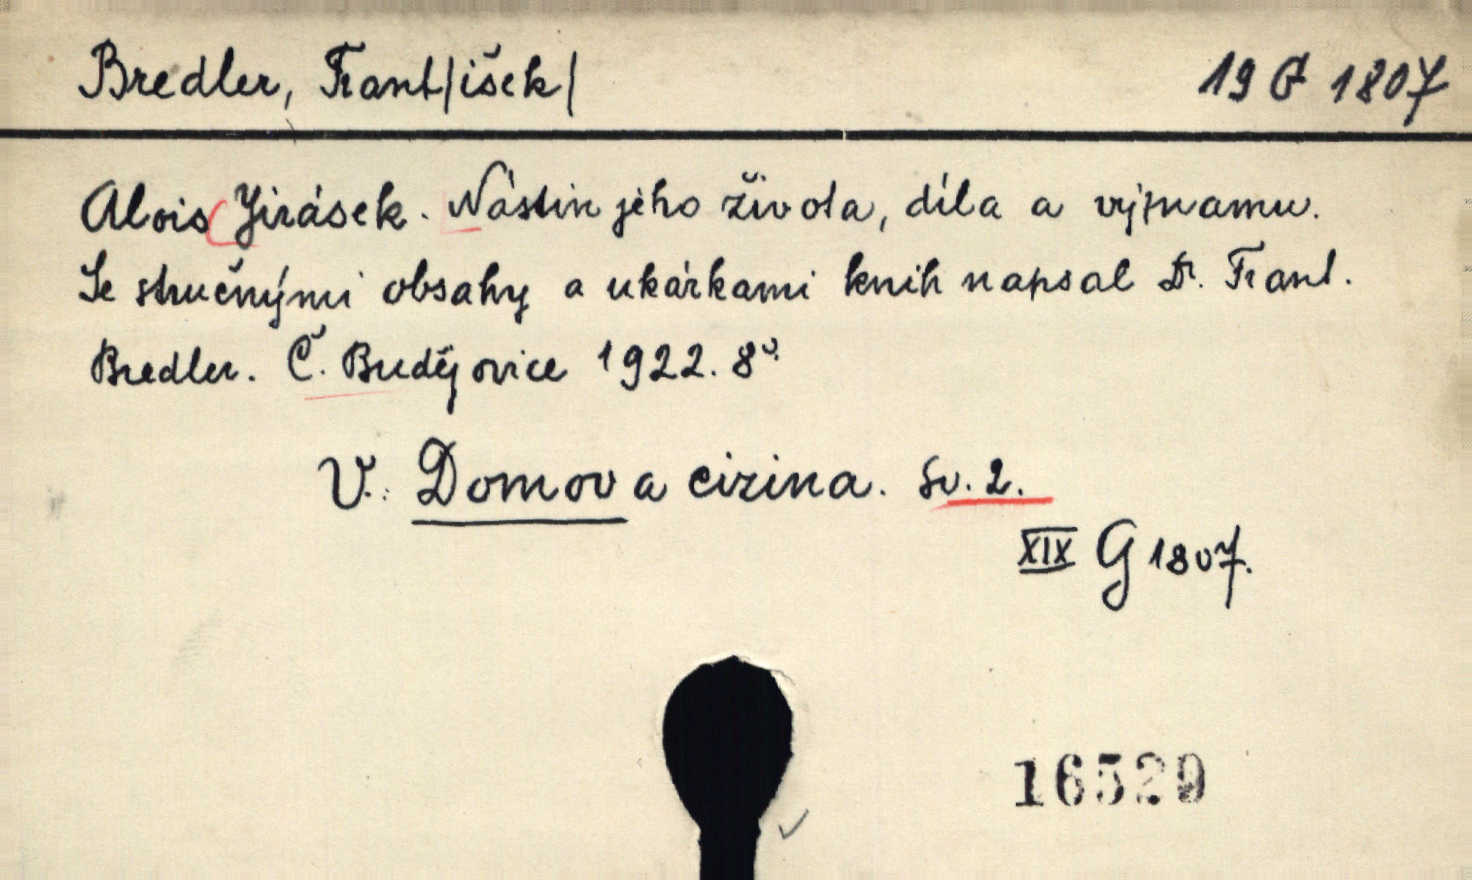 Bredler, Frant/išek/ 19 G 1807
Alois Jirásek. Nástin jeho života, díla a významu.
Se stručnými obsahy a ukázkami knih napsal Dr. Frant.
Bredler. Č. Budějovice 1922. 8°.
V: Domov a cizina. Sv. 2.
XIX G 1807.
16529